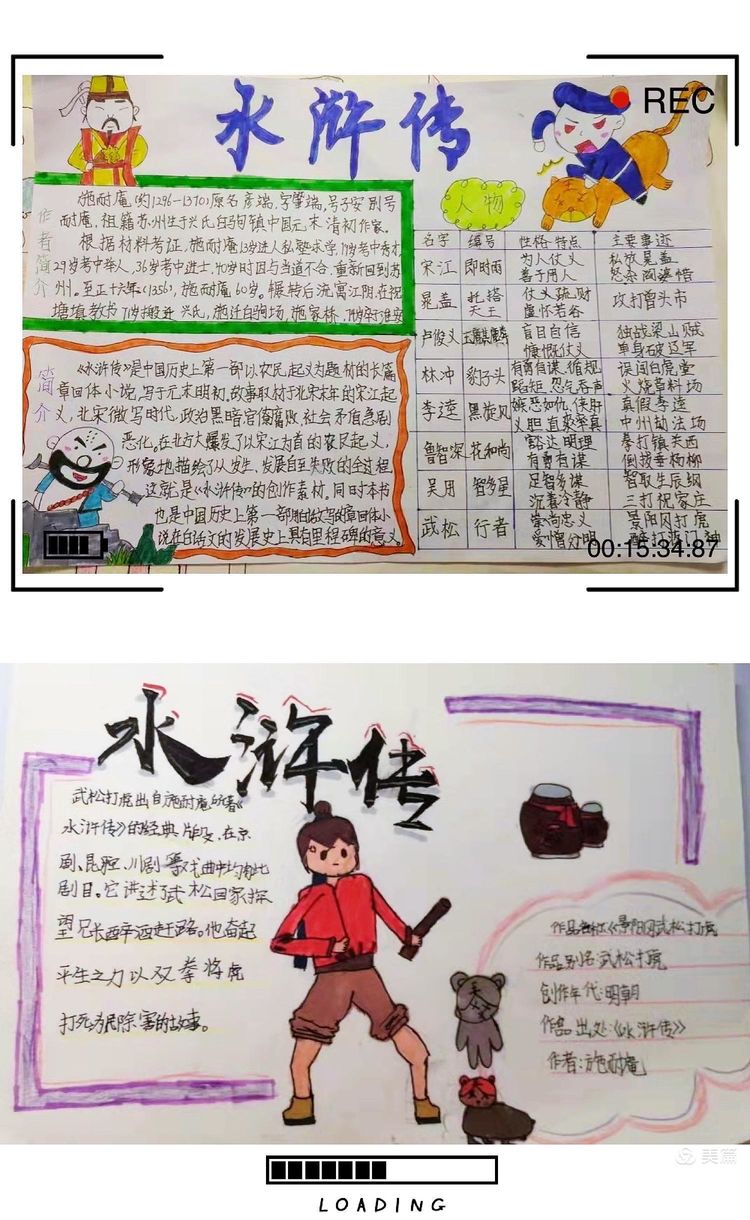 REC
水浒传
作者简介
施耐庵(约1296-1370)原名彦端,字肇瑞,号子安别号
耐庵,祖籍苏州生于兴氏白驹镇中国元末清初作家。
根据材料考证,施耐庵13岁进入私塾求学,19岁考中秀才,
29岁考中举人,36岁考中进士,40岁时因与当道不合,重新回到苏
州。至正十六年(1356),施耐庵60岁。辗转后流寓江阴,在祝
塘填教书71岁搬进兴氏,施迁白驹场、施家桥,
简介
《水浒传》是中国历史上第一部以农民起义为题材的长篇
章回体小说,写于元末明初,故事取材于北宋末年的宋江起
义,北宋微写时代,政治黑暗官僚腐败,社会矛盾急剧
恶化。在北方大爆发了以宋江为首的农民起义,
形象地描绘了从发生、发展自至失败的全过程
这就是《水浒传》的创作素材,同时本书
也是中国历史上第一部用白话文写的章回体小
说在白话文的发展史上具有里程碑的意义。
人物
名字 编号 性格特点 主要事迹
宋江 即时雨 为人仗义 善于用人 私放晁盖 怒杀阎婆惜
晁盖 托塔天王 仗义疏财 虚怀若谷 攻打曾头市
卢俊义 玉麒麟 盲目自信 慷慨仗义 独战梁山贼 单身破辽军
林冲 豹子头 有勇有谋、循规蹈矩、忍气吞声 误闯白虎堂 火烧草料场
李逵 黑旋风 嫉恶如仇、侠肝义胆、直爽率真 真假李逵 中州劫法场
鲁智深 花和尚 豁达明理 有勇有谋 拳打镇关西 倒拔垂杨柳
吴用 智多星 足智多谋 沉着冷静 智取生辰纲 三打祝家庄
武松 行者 崇尚忠义 爱憎分明 景阳冈打虎 醉打蒋门神
00:15.34:87
水浒传
武松打虎出自施耐庵所著《
水浒传》的经典片段,在京
剧、昆腔、川剧等戏曲中均有此
剧目。它讲述了武松回家探
望兄长醉酒赶路。他奋起
平生之力以双拳将虎
打死为民除害的故事。
作品《景阳冈武松打虎
作品别名:武松打虎
创作年代:明朝
作品出处:《水浒传》
作者:施耐庵
美篇
LOADING